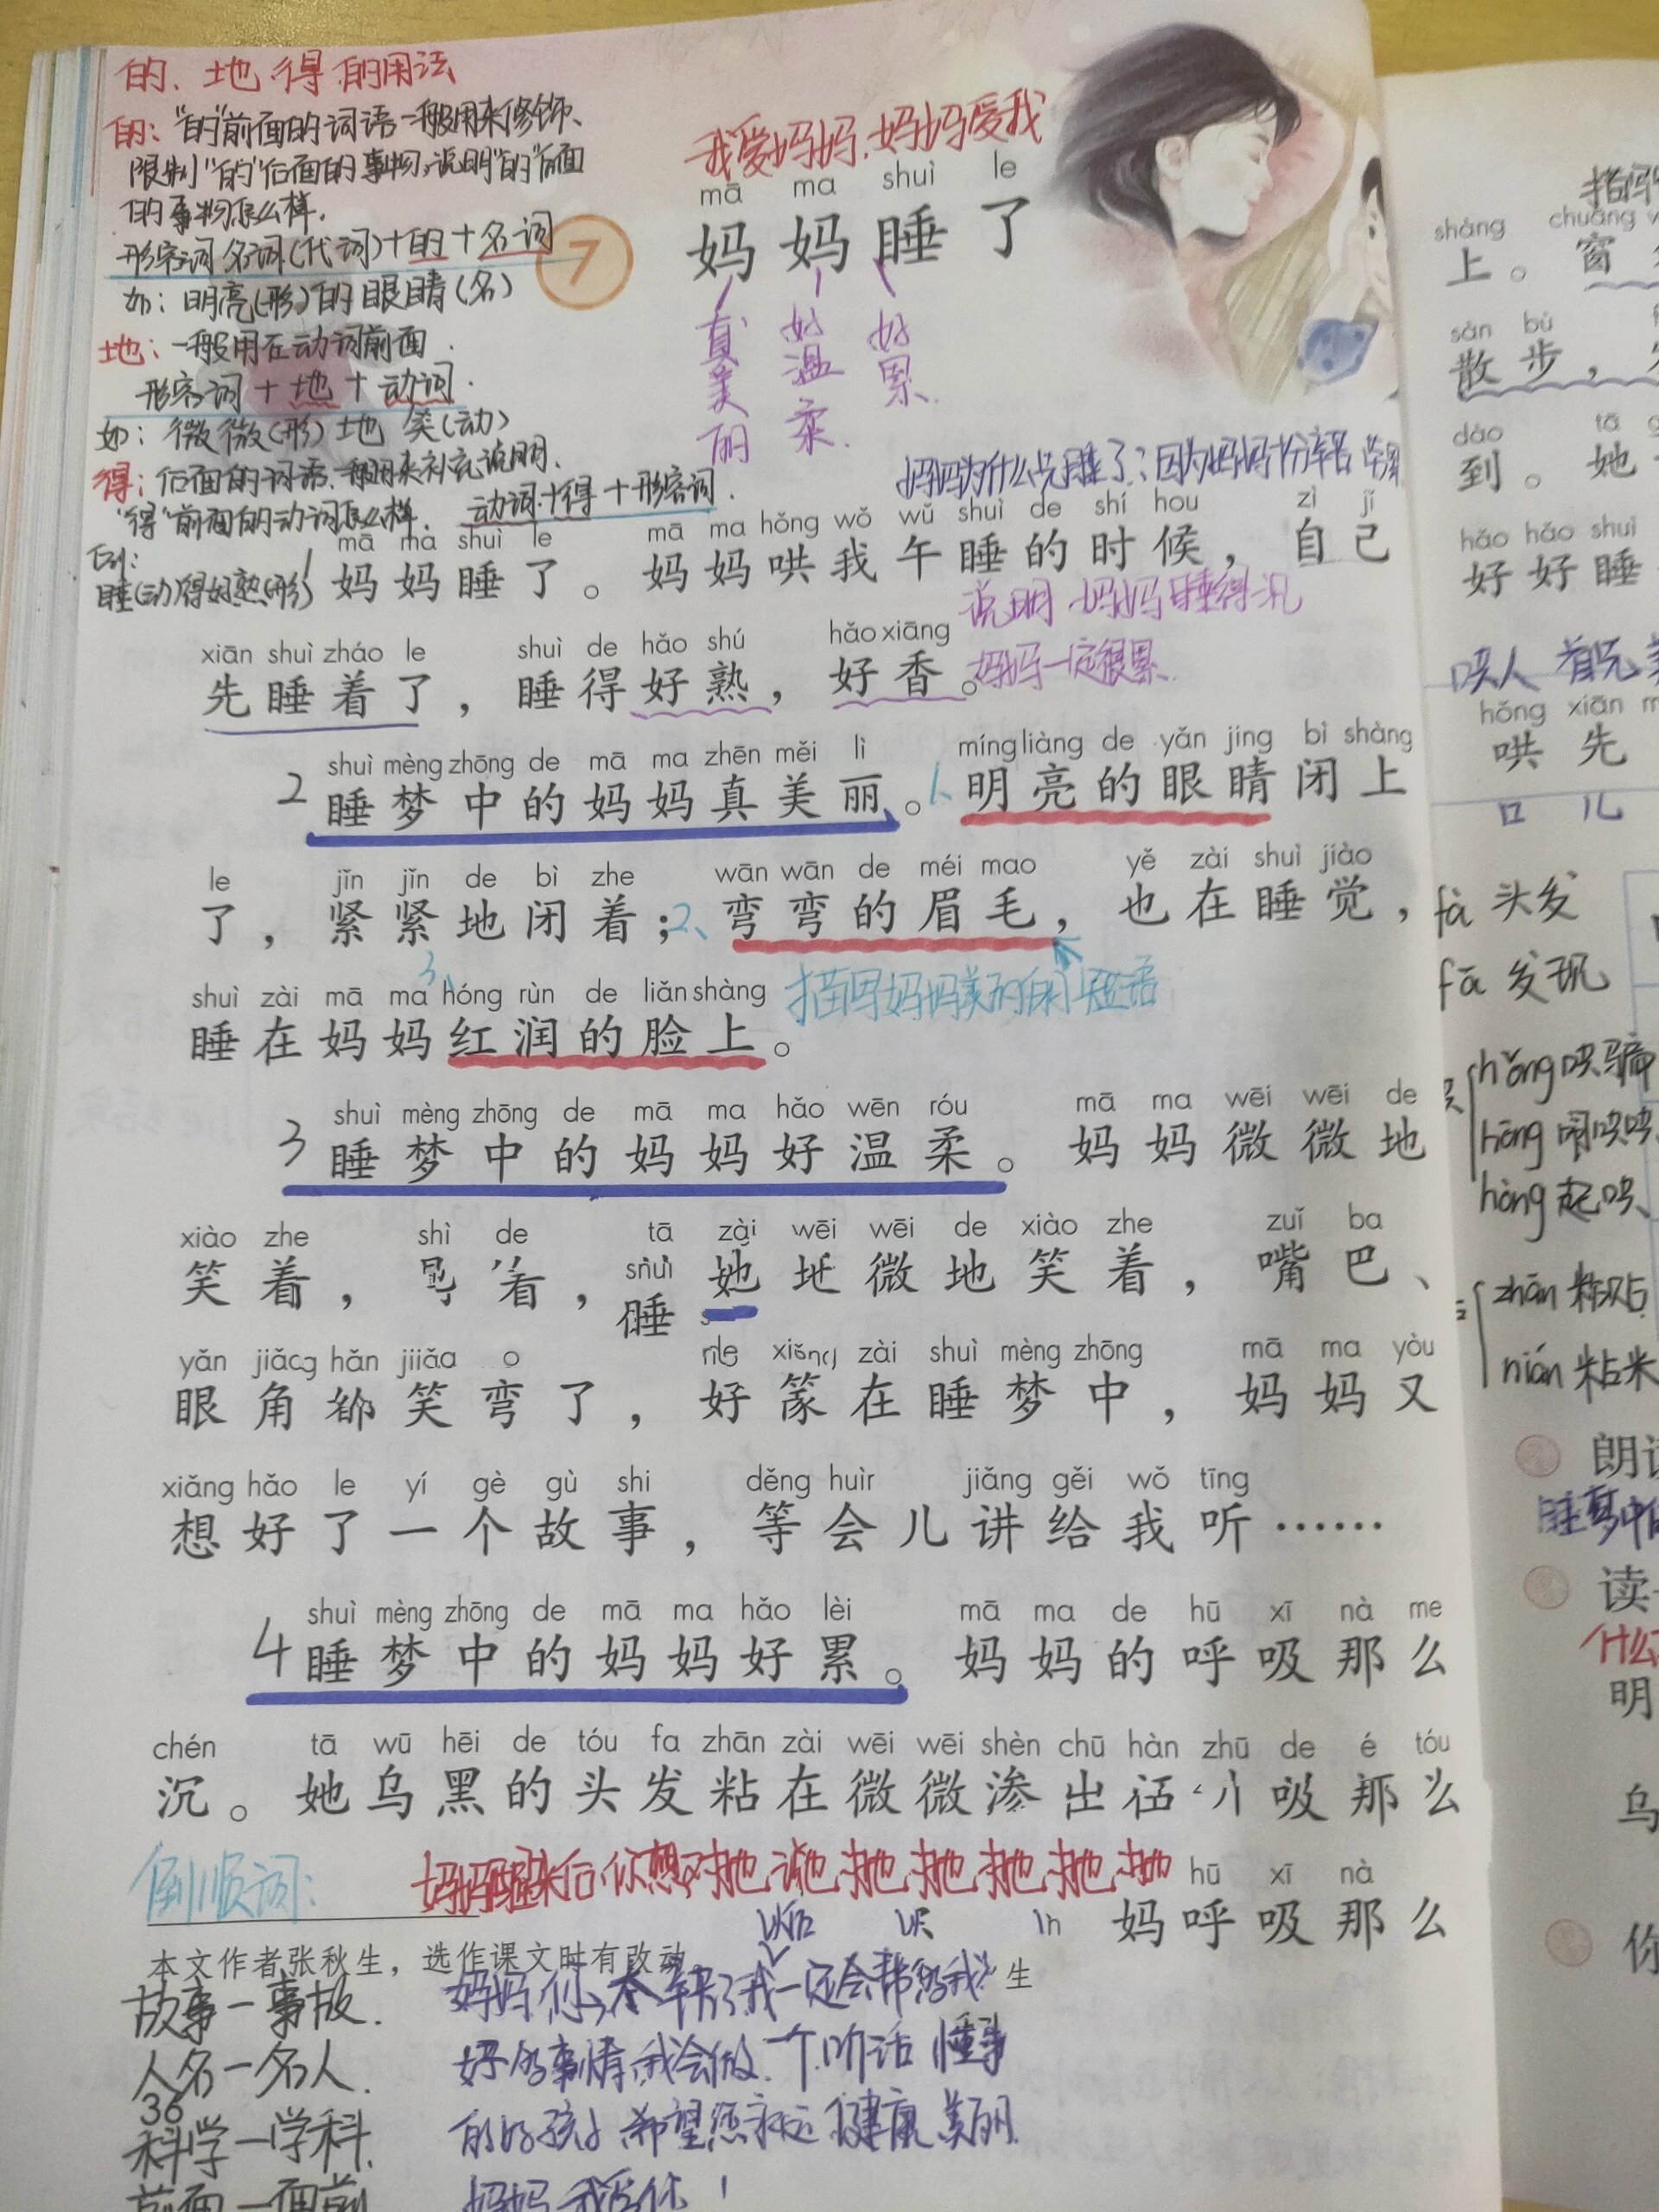 的、地、得的用法
的："的"前面的词语一般用来修饰、
限制"的"后面的事物，说明"的"后面
的事物怎么样。
形容词 名词(代词)+的+名词
如：明亮(形)的眼睛(名)
地：一般用在动词前面.
形容词+地+动词.
如：微微(形)地 笑(动)
得：后面的词语一般用来补充说明.
"得"前面的动词怎么样. 动词+得+形容词.
例：
睡(动)得好熟(形)
7
我爱妈妈,妈妈爱我
mā ma shuì le
妈妈睡了
真美丽
好温柔.
好累.
妈妈为什么先睡了：因为妈妈十分辛苦
mā ma shuì le mā ma hǒng wǒ wǔ shuì de shí hou zì jǐ
1 妈妈睡了。妈妈哄我午睡的时候，自己
说明妈妈睡得沉
妈妈一定很累.
xiān shuì zháo le shuì de hǎo shú hǎo xiāng
先睡着了，睡得好熟，好香。
shuì mèng zhōng de mā ma zhēn měi lì míng liàng de yǎn jing bì shàng
2 睡梦中的妈妈真美丽。1、明亮的眼睛闭上
le jǐn jǐn de bì zhe wān wān de méi mao yě zài shuì jiào
了，紧紧地闭着；2、弯弯的眉毛，也在睡觉，
3、
shuì zài mā ma hóng rùn de liǎn shàng
睡在妈妈红润的脸上。
描写妈妈美丽的短语
shuì mèng zhōng de mā ma hǎo wēn róu mā ma wēi wēi de
3 睡梦中的妈妈好温柔。妈妈微微地
xiào zhe shì de tā zài wēi wēi de xiào zhe zuǐ ba
笑着， 着， 睡 她 微地笑着，嘴巴、
yǎn zài shuì mèng zhōng mā ma yòu
眼角 笑弯了，好 在睡梦中，妈妈又
xiǎng hǎo le yí gè gù shi děng huìr jiǎng gěi wǒ tīng
想好了一个故事，等会儿讲给我听……
shuì mèng zhōng de mā ma hǎo lèi mā ma de hū xī nà me
4 睡梦中的妈妈好累。妈妈的呼吸那么
chén tā wū hēi de tóu fa zhān zài wēi wēi shèn chū hàn zhū de é tóu
沉。她乌黑的头发粘在微微渗出 吸那么
倒顺词：
hū xī nà
妈呼吸那么
本文作者张秋生，选作课文时有改动。
生
故事一事故.
人名一名人.
36
科学一学科.
前面一面前
妈妈 我一定会帮
好 事情 我会做 一个听话 懂事
的好孩子 希望您永远健康 美丽.
妈妈我爱你！
shàng chuāng
上。窗
sàn bù
散步，
dào tā
到。她
hǎo hǎo shuì
好好睡
hǒng xiān
哄 先
口 儿
fà 头发
fā 发现
hǒng 哄骗
hōng 闹哄哄
hòng 起哄
zhān 粘贴
nián 粘米
朗读
睡梦中的
读
什么
明
乌
你